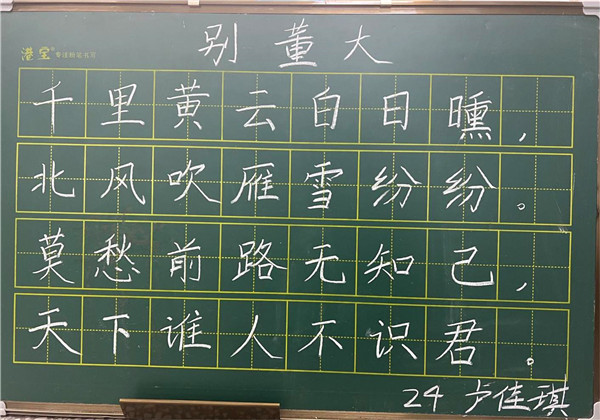 别董大
港宝
千里黄云白日曛,
北风吹雁雪纷纷。
莫愁前路无知己,
天下谁人不识君。
24 卢佳琪